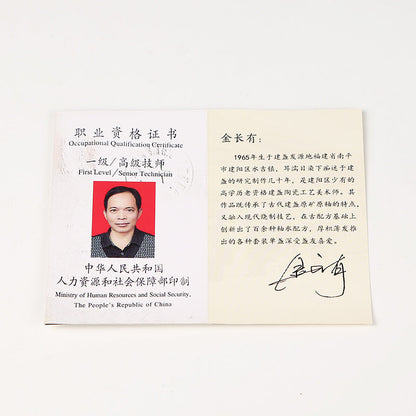 职业资格证书
Occupational Qualification Certificate
一级/高级技师
First Level / Senior Technician
中华人民共和国
人力资源和社会保障部印制
Ministry of Human Resources and Social Security,
The People's Republic of China
金长有：
1965年生于建盏发源地福建省南平
市建阳区水吉镇，耳濡目染下痴迷于建
盏的研究制作几十年，是建阳区少有的
高学历老资格建盏陶瓷工艺美术师。其
作品既传承了古代建盏原矿原釉的特点，
又融入现代烧制技艺，在古配方基础上
创新出了百余种釉水配方，厚积薄发推
出的各种套装单盏深受盏友喜爱。
金长有